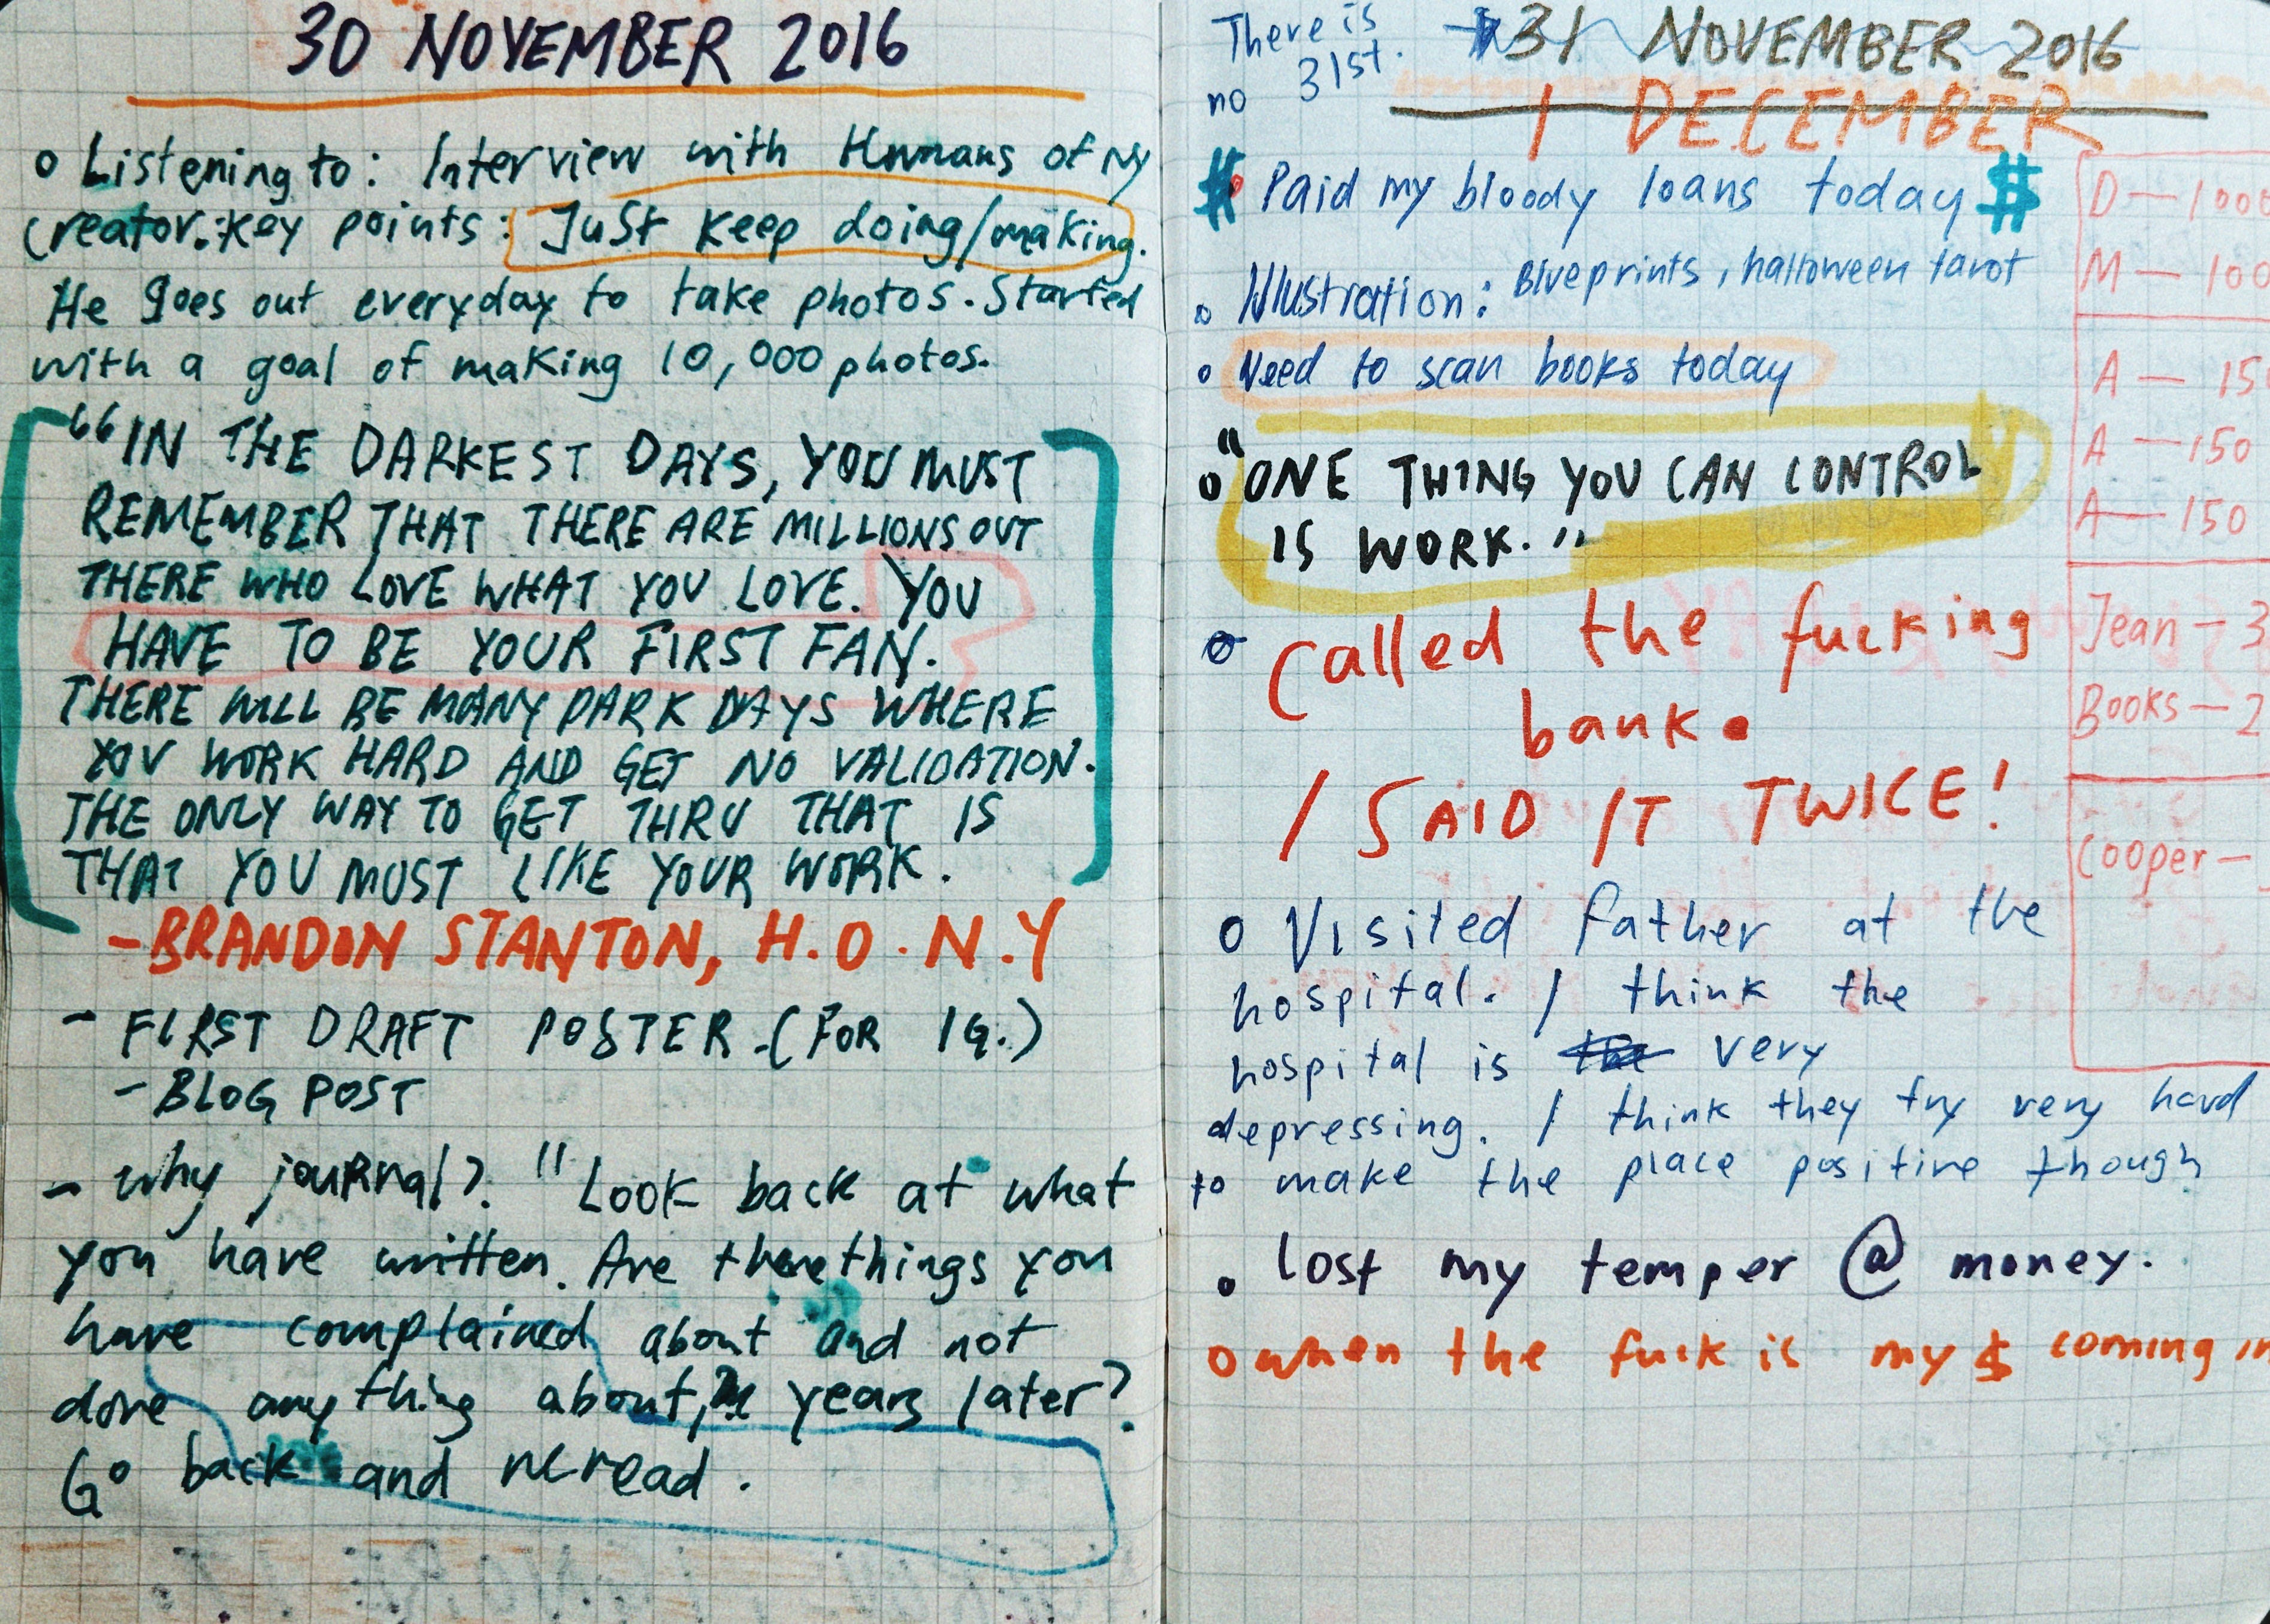 30 NOVEMBER 2016
o Listening to: Interview with Humans of NY
creator. key points: Just keep doing/making.
He goes out everyday to take photos. Started
with a goal of making 10,000 photos.
"IN THE DARKEST DAYS, YOU MUST
REMEMBER THAT THERE ARE MILLIONS OUT
THERE WHO LOVE WHAT YOU LOVE. YOU
HAVE TO BE YOUR FIRST FAN.
THERE WILL BE MANY DARK DAYS WHERE
YOU WORK HARD AND GET NO VALIDATION.
THE ONLY WAY TO GET THRU THAT IS
THAT YOU MUST LIKE YOUR WORK.
- BRANDON STANTON, H.O.N.Y
- FIRST DRAFT POSTER. (FOR IG.)
- BLOG POST
- Why journal? "Look back at what
you have written. Are there things you
have complained about and not
done anything about, years later?
Go back and reread.
There is
no 31st.
31 NOVEMBER 2016
1 DECEMBER
$ Paid my bloody loans today $
o Illustration: Blueprints, halloween tarot
o Need to scan books today
o "ONE THING YOU CAN CONTROL
IS WORK."
o Called the fucking
bank.
I SAID IT TWICE!
o Visited father at the
hospital. I think the
hospital is the very
depressing. I think they try very hard
to make the place positive though
o Lost my temper @ money.
o when the fuck is my $ coming in
D — 1000
M — 100
A — 15
A — 150
A — 150
Jean — 3
Books — 2
Cooper —